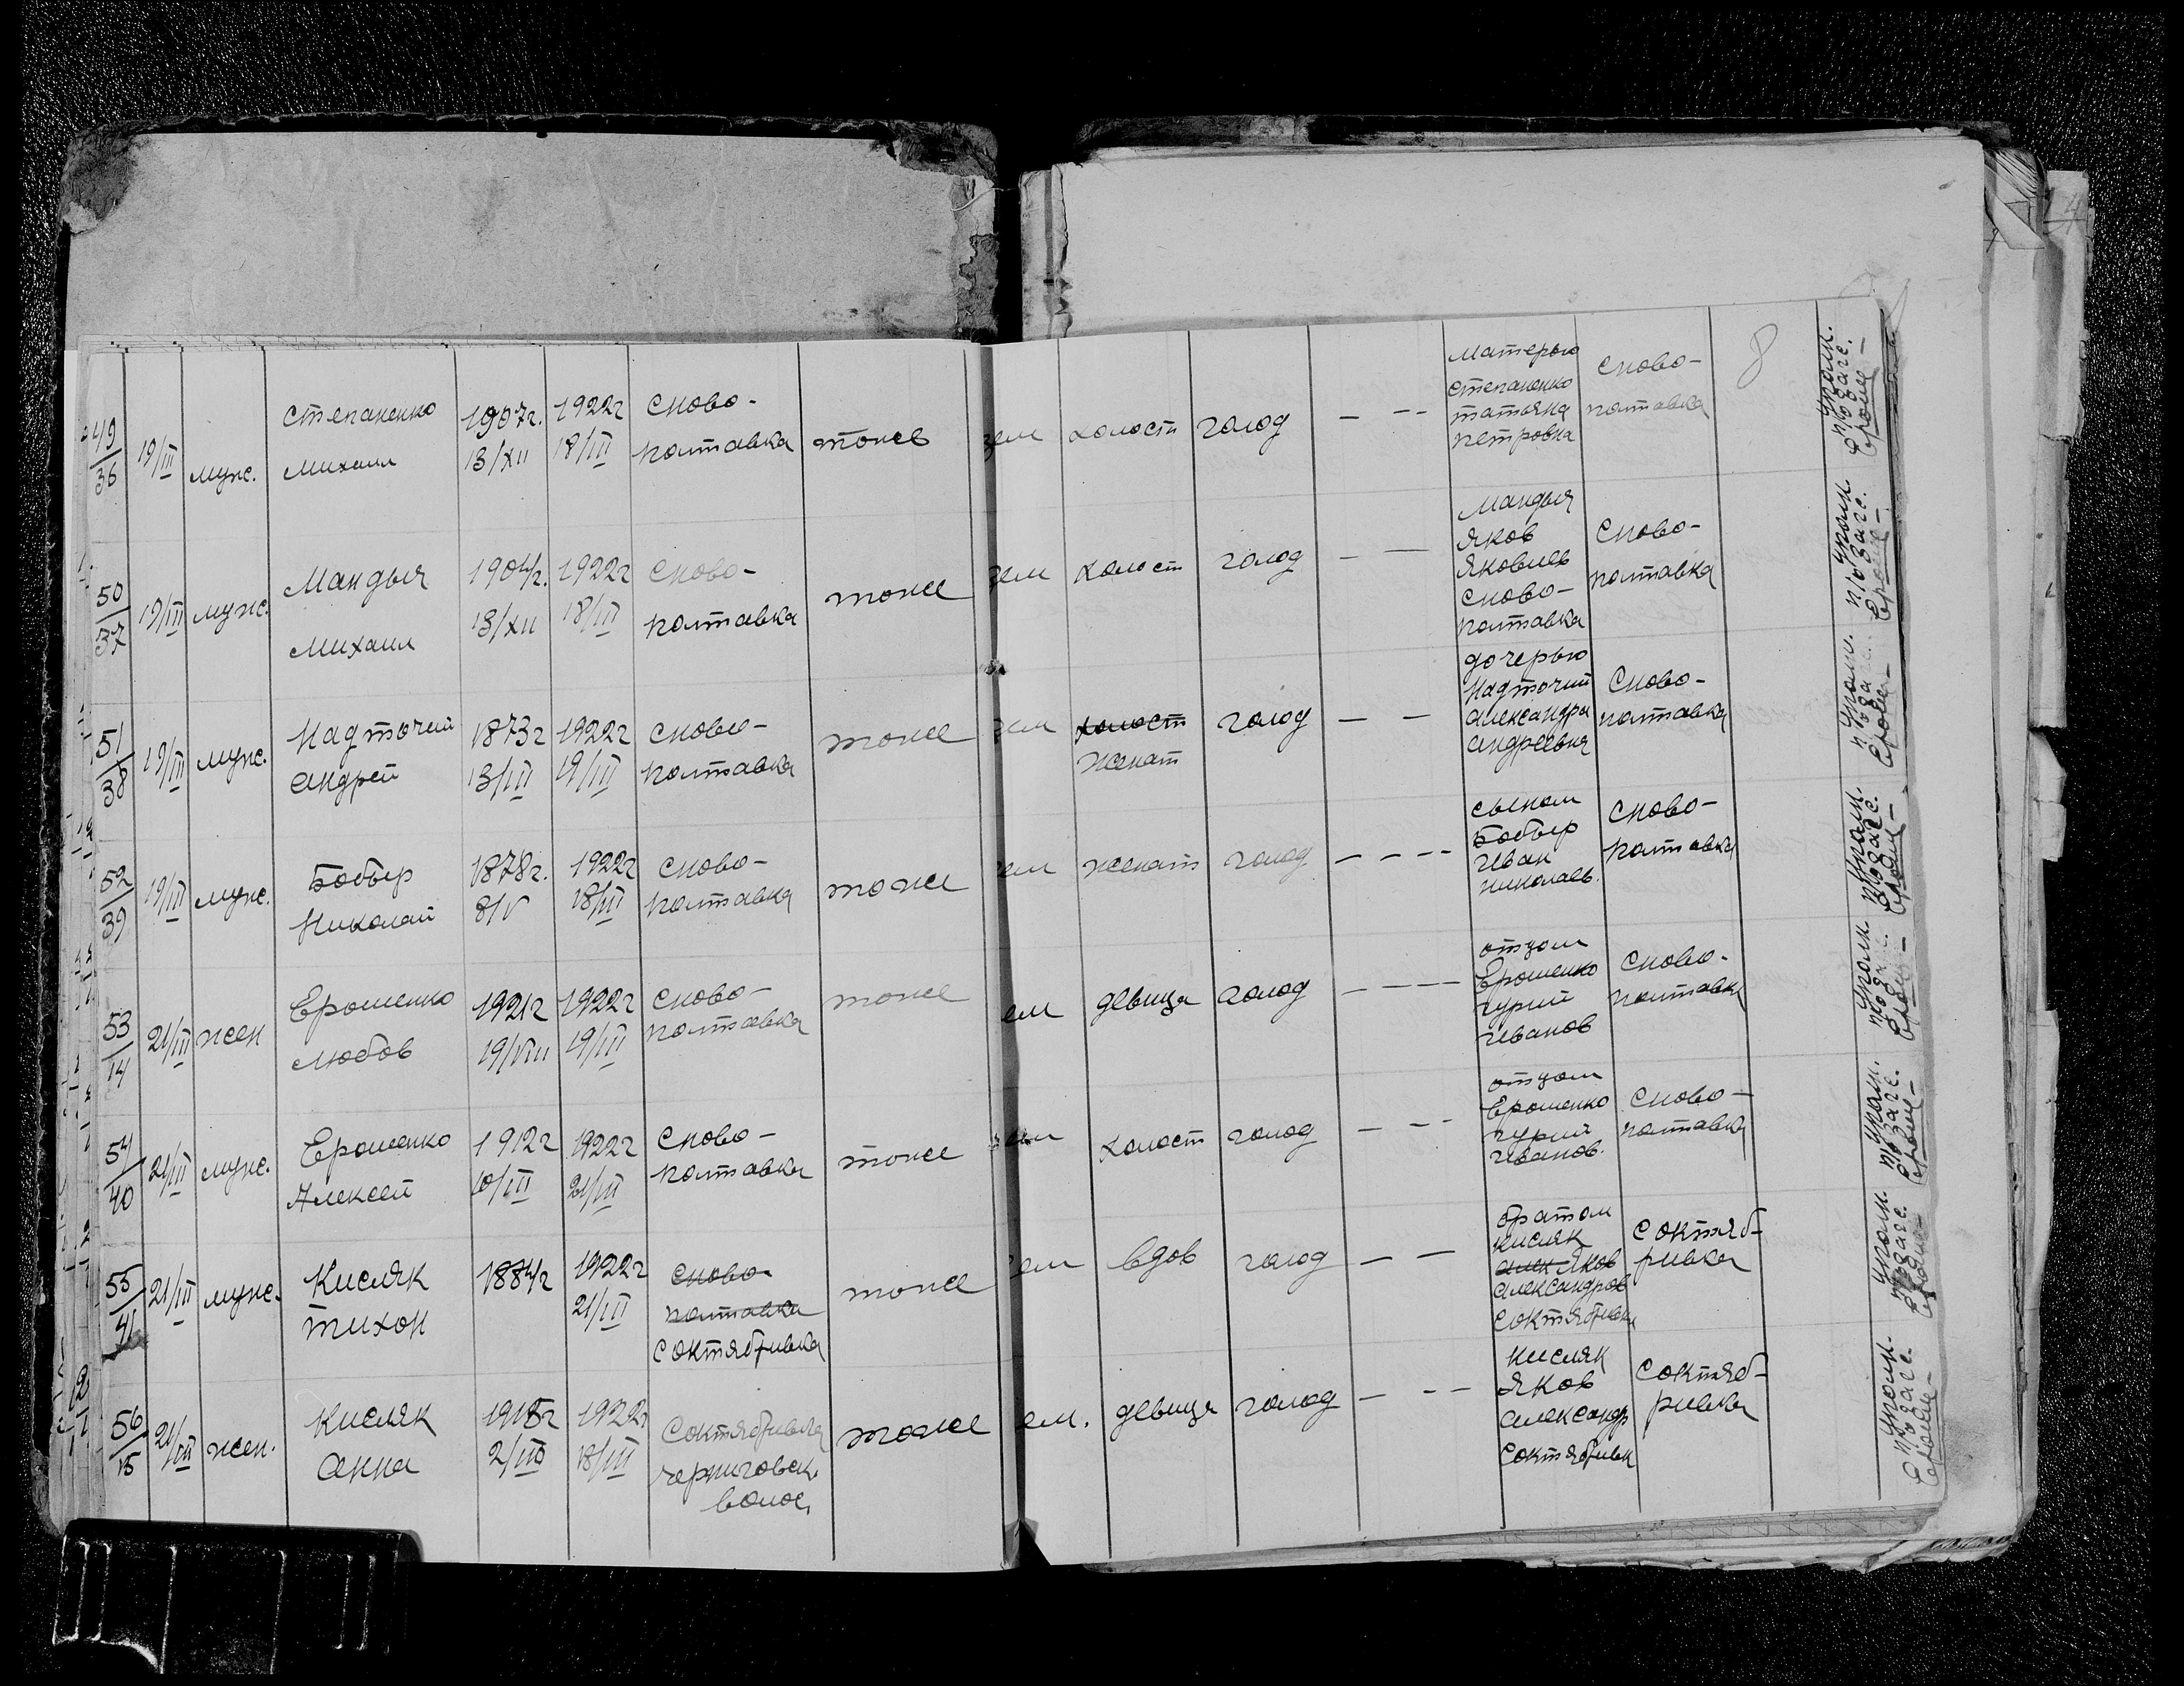 8
49/36 19/III муж. Степаненко Михаил 1907г. 13/XII 1922г 18/III Сново-полтавка тоже зем холост голод — -- Матерью Степаненко татьяна петровна Сново-полтавка Уполн. п/озагс. Ерош
50/37 19/III муж. Мандыч Михаил 1904/г. 13/XII 1922г 18/III Сново-полтавка тоже зем холост голод — — Мандыч Яков Яковлев Сново-полтавка Сново-полтавка Уполн. п/озагс. Ерош
51/38 19/III муж. Надточий Андрей 1873г 13/III 1922г 19/III Сново-полтавка тоже зем холост женат голод — — дочерью Надточий Александра Андреевна Сново-полтавка Уполн. Ерош
52/39 19/III муж. Бобыр Николай 1878г. 8/V 1922г 18/III Сново-полтавка тоже ем женат голод — - - - сыном Бобыр Иван николаев. Сново-полтавка Уполн. п/озагс. Ерош
53/14 21/III жен Ерошенко Любов 1921г 19/VIII 1922г 19/III Сново-полтавка тоже ем девица голод - — — — отцом Ерошенко гурий Иванов Сново-полтавка Уполн. Ерош
54/40 21/III муж. Ерошенко Алексей 1912г 10/III 1922г 21/III Сново-полтавка тоже зем холост голод — - - отцом Ерошенко гурия Иванов. Сново-полтавка Уполн. п/озагс. Ерош
55/41 21/III муж. Кисляк тихон 1884/г 1922г 21/III Сново-полтавка Соктябривка тоже ем вдов голод — — братом Кисляк Алек Яков Александров Соктябривка Соктябривка Уполн. п/озагс. Ерош
56/15 21/III жен. Кисляк Анна 1922г 18/III Соктябривка черниговск. волос. тоже ем. девица голод — - — Кисляк Яков Александр Соктябривк Соктябривка Уполн. п/озагс. Ерош